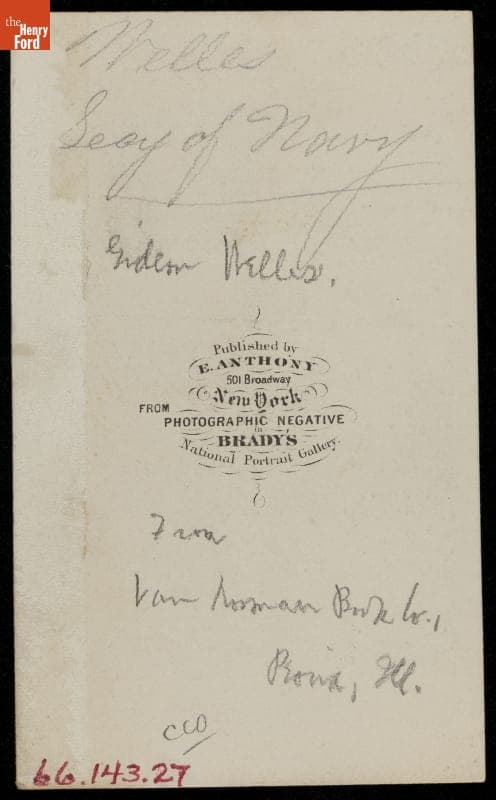 the
Henry
Ford
Welles
Secy of Navy
Gideon Welles.
Published by
E. ANTHONY
501 Broadway
New York
FROM
PHOTOGRAPHIC NEGATIVE
in
BRADY'S
National Portrait Gallery.
From
Van Norman Book Co.,
Peoria, Ill.
66.143.27